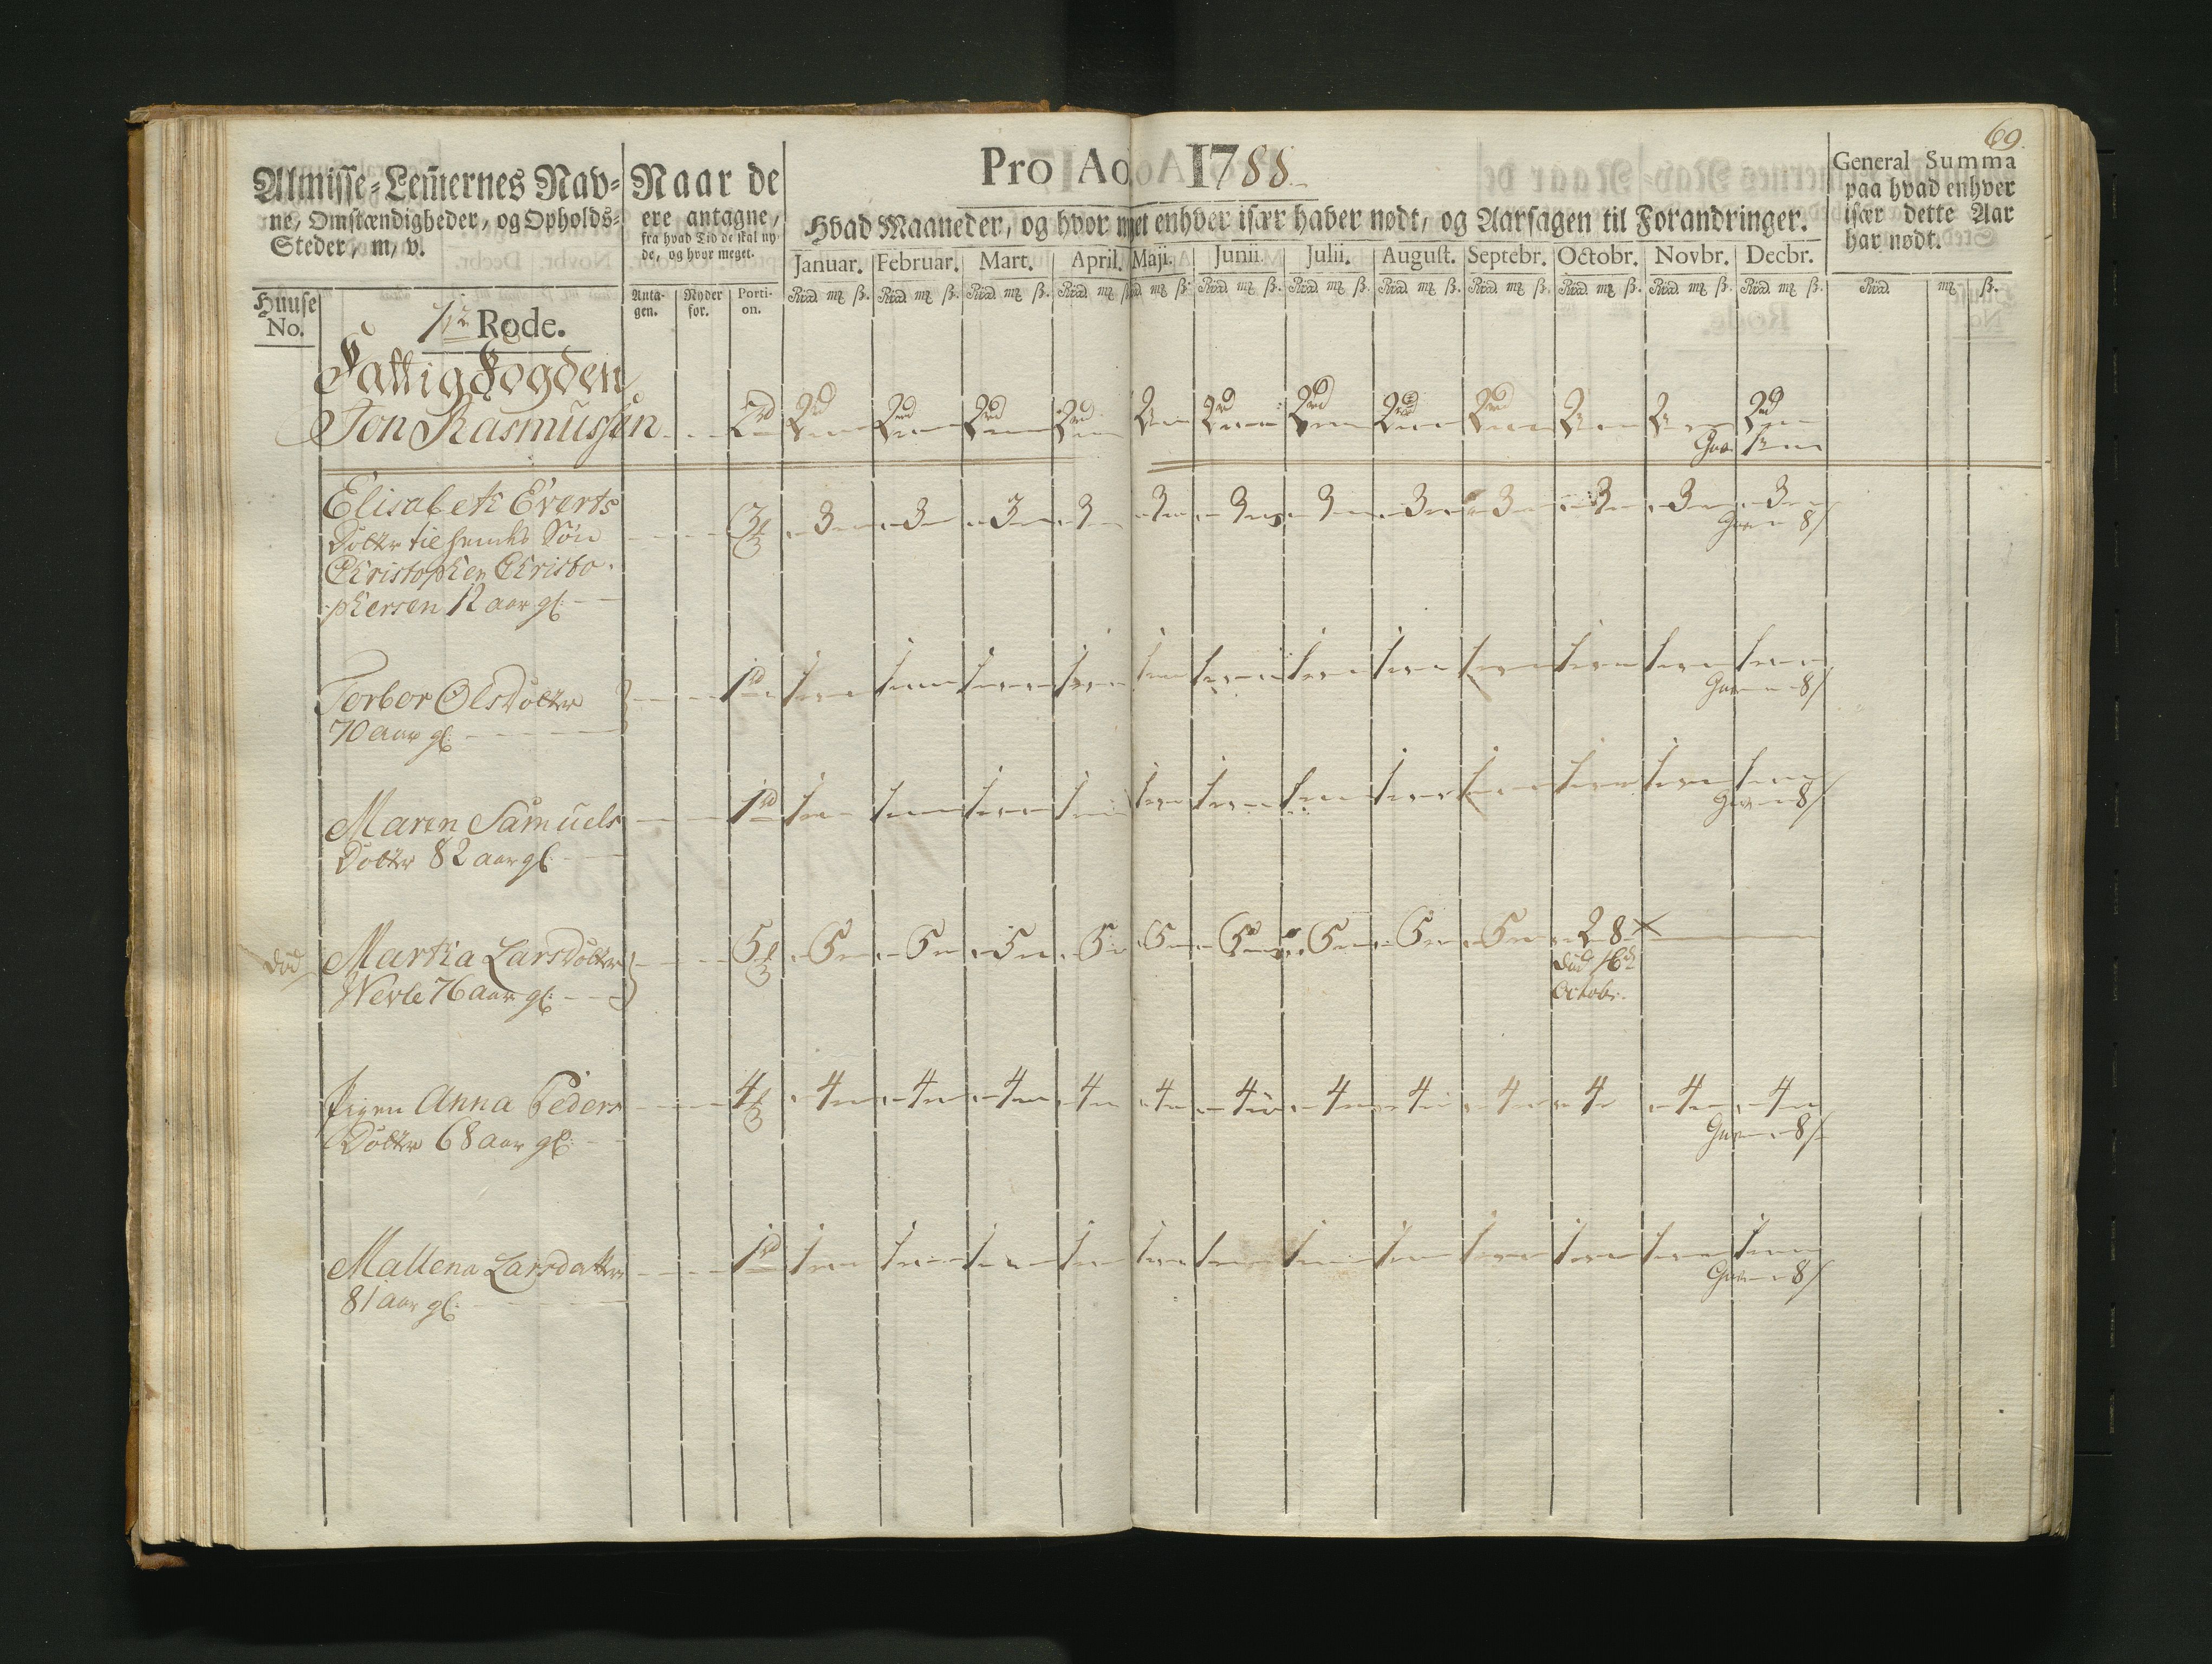 69.
Almisse-Lem̄ernes Nav-
ne, Omstændigheder, og Opholds-
Steder, m, v.
Naar de
ere antagne,
fra hvad Tid de skal ny-
de, og hvor meget.
Pro Ao 1788
Hvad Maaneder, og hvor meget enhver især haver nødt, og Aarsagen til Forandringer.
General Summa
paa hvad enhver
især dette Aar
har nødt.
Januar. Februar. Mart. April. Maji. Junii. Julii. August. Septebr. Octobr. Novbr. Decbr.
Huuse No.
Rode.
Anta- gen.
Nyder for.
Porti- on.
Rdd. mk ß. Rdd. mk ß. Rdd. mk ß. Rdd. mk ß. Rdd. mk ß. Rdd. mk ß. Rdd. mk ß. Rdd. mk ß. Rdd. mk ß. Rdd. mk ß. Rdd. mk ß. Rdd. mk ß. Rdd. mk ß.
FattigFogden
Jon Rasmussen 2rd 2rd 2rd 2rd 2rd 2 2rd 2rd 2rd 2rd 2 2 2rd
Elisabeth Everts 3 3 3 3 3 3 3 3 3 3 3 3 3
Dotter til hendes Søn 8
Christopher Christo-
-phersen 12 aar gl:
Torbor OlsDotter 1rd 1 1 1 1 1 1 1 1 1 1 1 1
70 aar gl: 8
Maren Samuels 1rd 1 1 1 1 1 1 1 1 1 1 1 1
Dotter 82 aar gl: 8
død Martha LarsDotter 5 5 5 5 5 5 5 5 5 5 2 8
Werle 76 aar gl: død 16de
Octobr.
Pigen Anna Peders 4 4 4 4 4 4 4 4 4 4 4 4 4
Dotter 68 aar gl: 8
Mallena Larsdatter 1rd 1 1 1 1 1 1 1 1 1 1 1 1
81 aar gl: 8